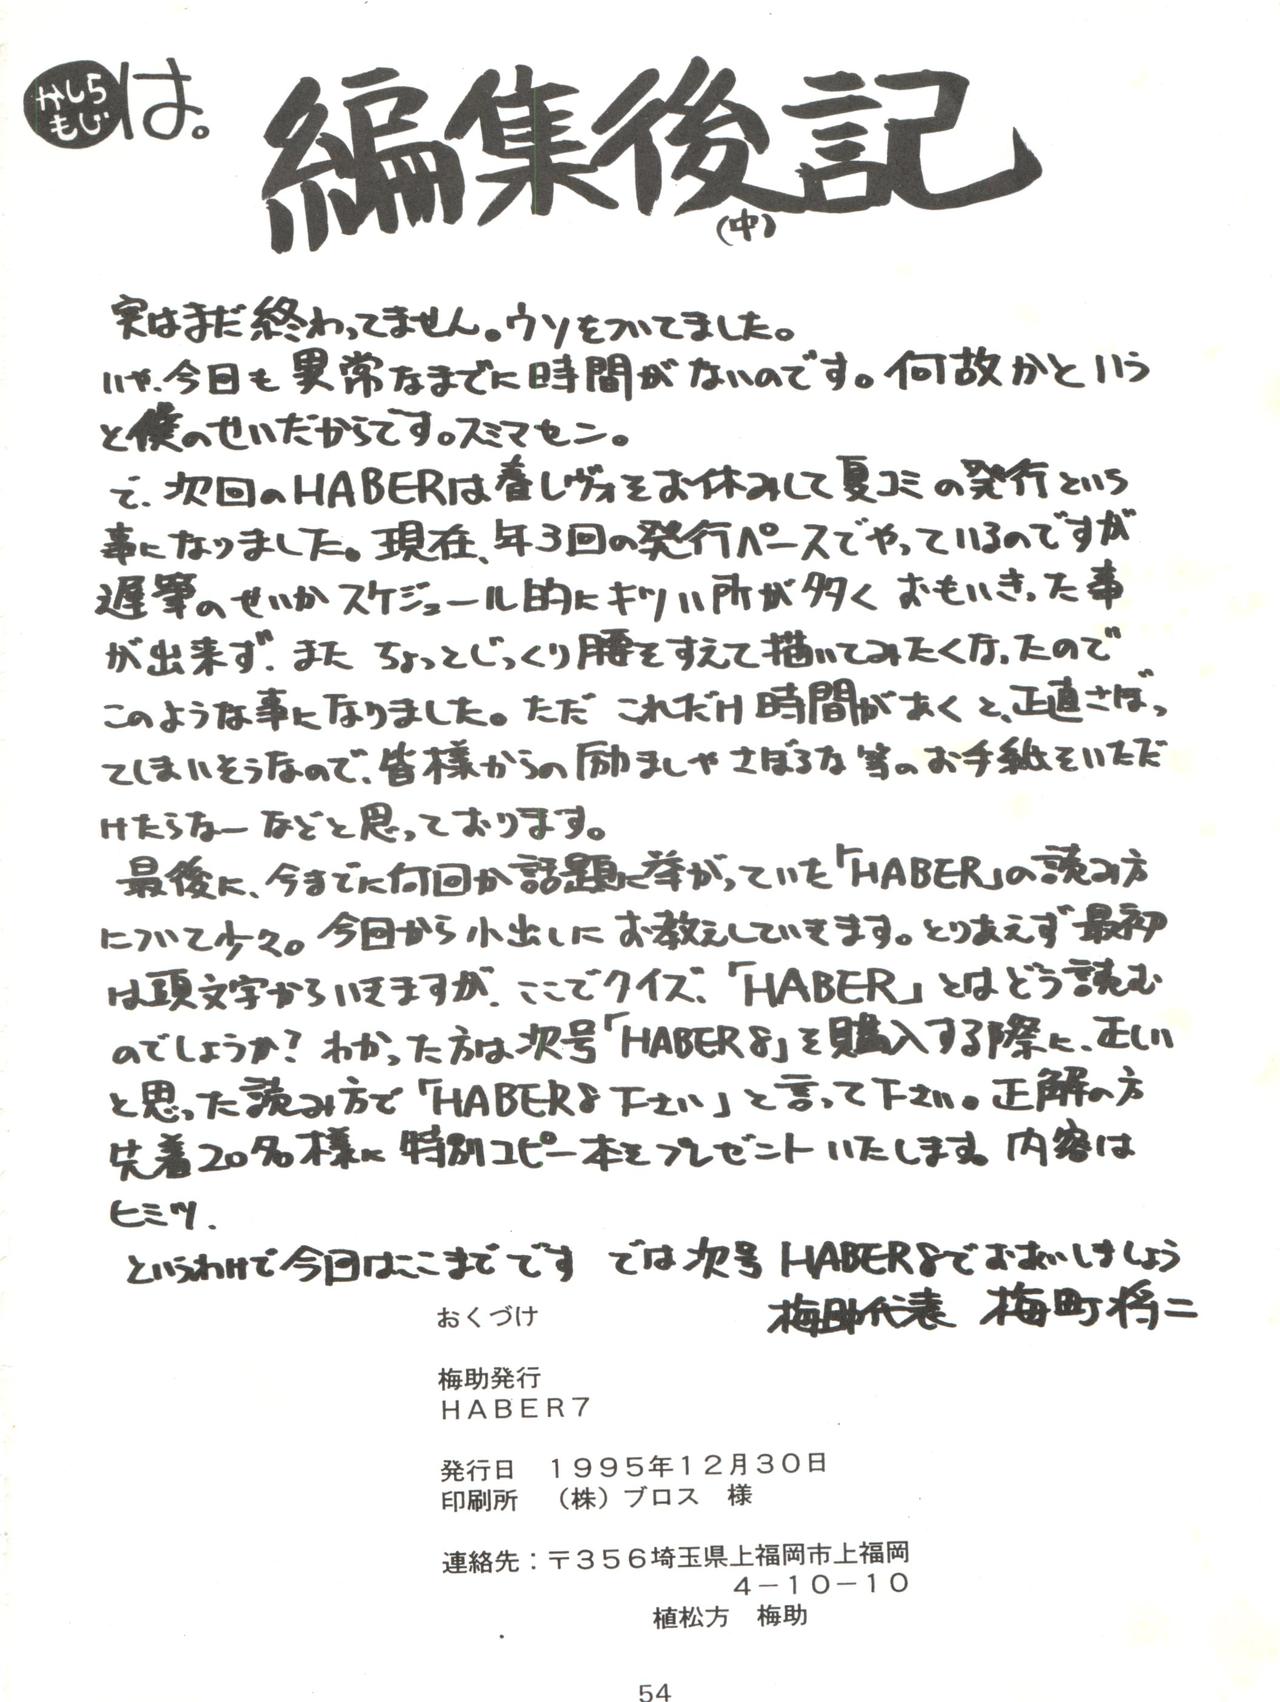 かしら
もじ
は。
編集後記
(中)
実はまだ終わってません。ウソをついてました。
いや、今日も異常なまでに時間がないのです。何故かという
と僕のせいだからです。スミマセン。
で、次回のHABERは春レヴォをお休みして夏コミの発行という
事になりました。現在、年3回の発行ペースでやっているのですが
遅筆のせいかスケジュール的にキツい所が多く おもいきった事
が出来ず、また ちょっとじっくり腰をすえて描いてみたくなったので
このような事になりました。ただ これだけ時間があくと、正直さぼっ
てしまいそうなので、皆様からの励ましやさぼるな等のお手紙をいただ
けたらなー などと思っております。
最後に、今までに何回か話題に挙がっていた「HABER」の読み方
について少々。今回から小出しにお教えしていきます。とりあえず最初
は頭文字からいきますが、ここでクイズ、「HABER」とはどう読む
のでしょうか？わかった方は次号「HABER8」を購入する際に、正しい
と思った読み方で「HABER8下さい」と言って下さい。正解の方
先着20名様に特別コピー本をプレゼントいたします。内容は
ヒミツ.
というわけで今回はここまでです では次号HABER8でお会いしましょう
梅助代表 梅町将二
おくづけ
梅助発行
HABER7
発行日 1995年12月30日
印刷所 （株）ブロス 様
連絡先：〒356埼玉県上福岡市上福岡
4－10－10
植松方 梅助
54